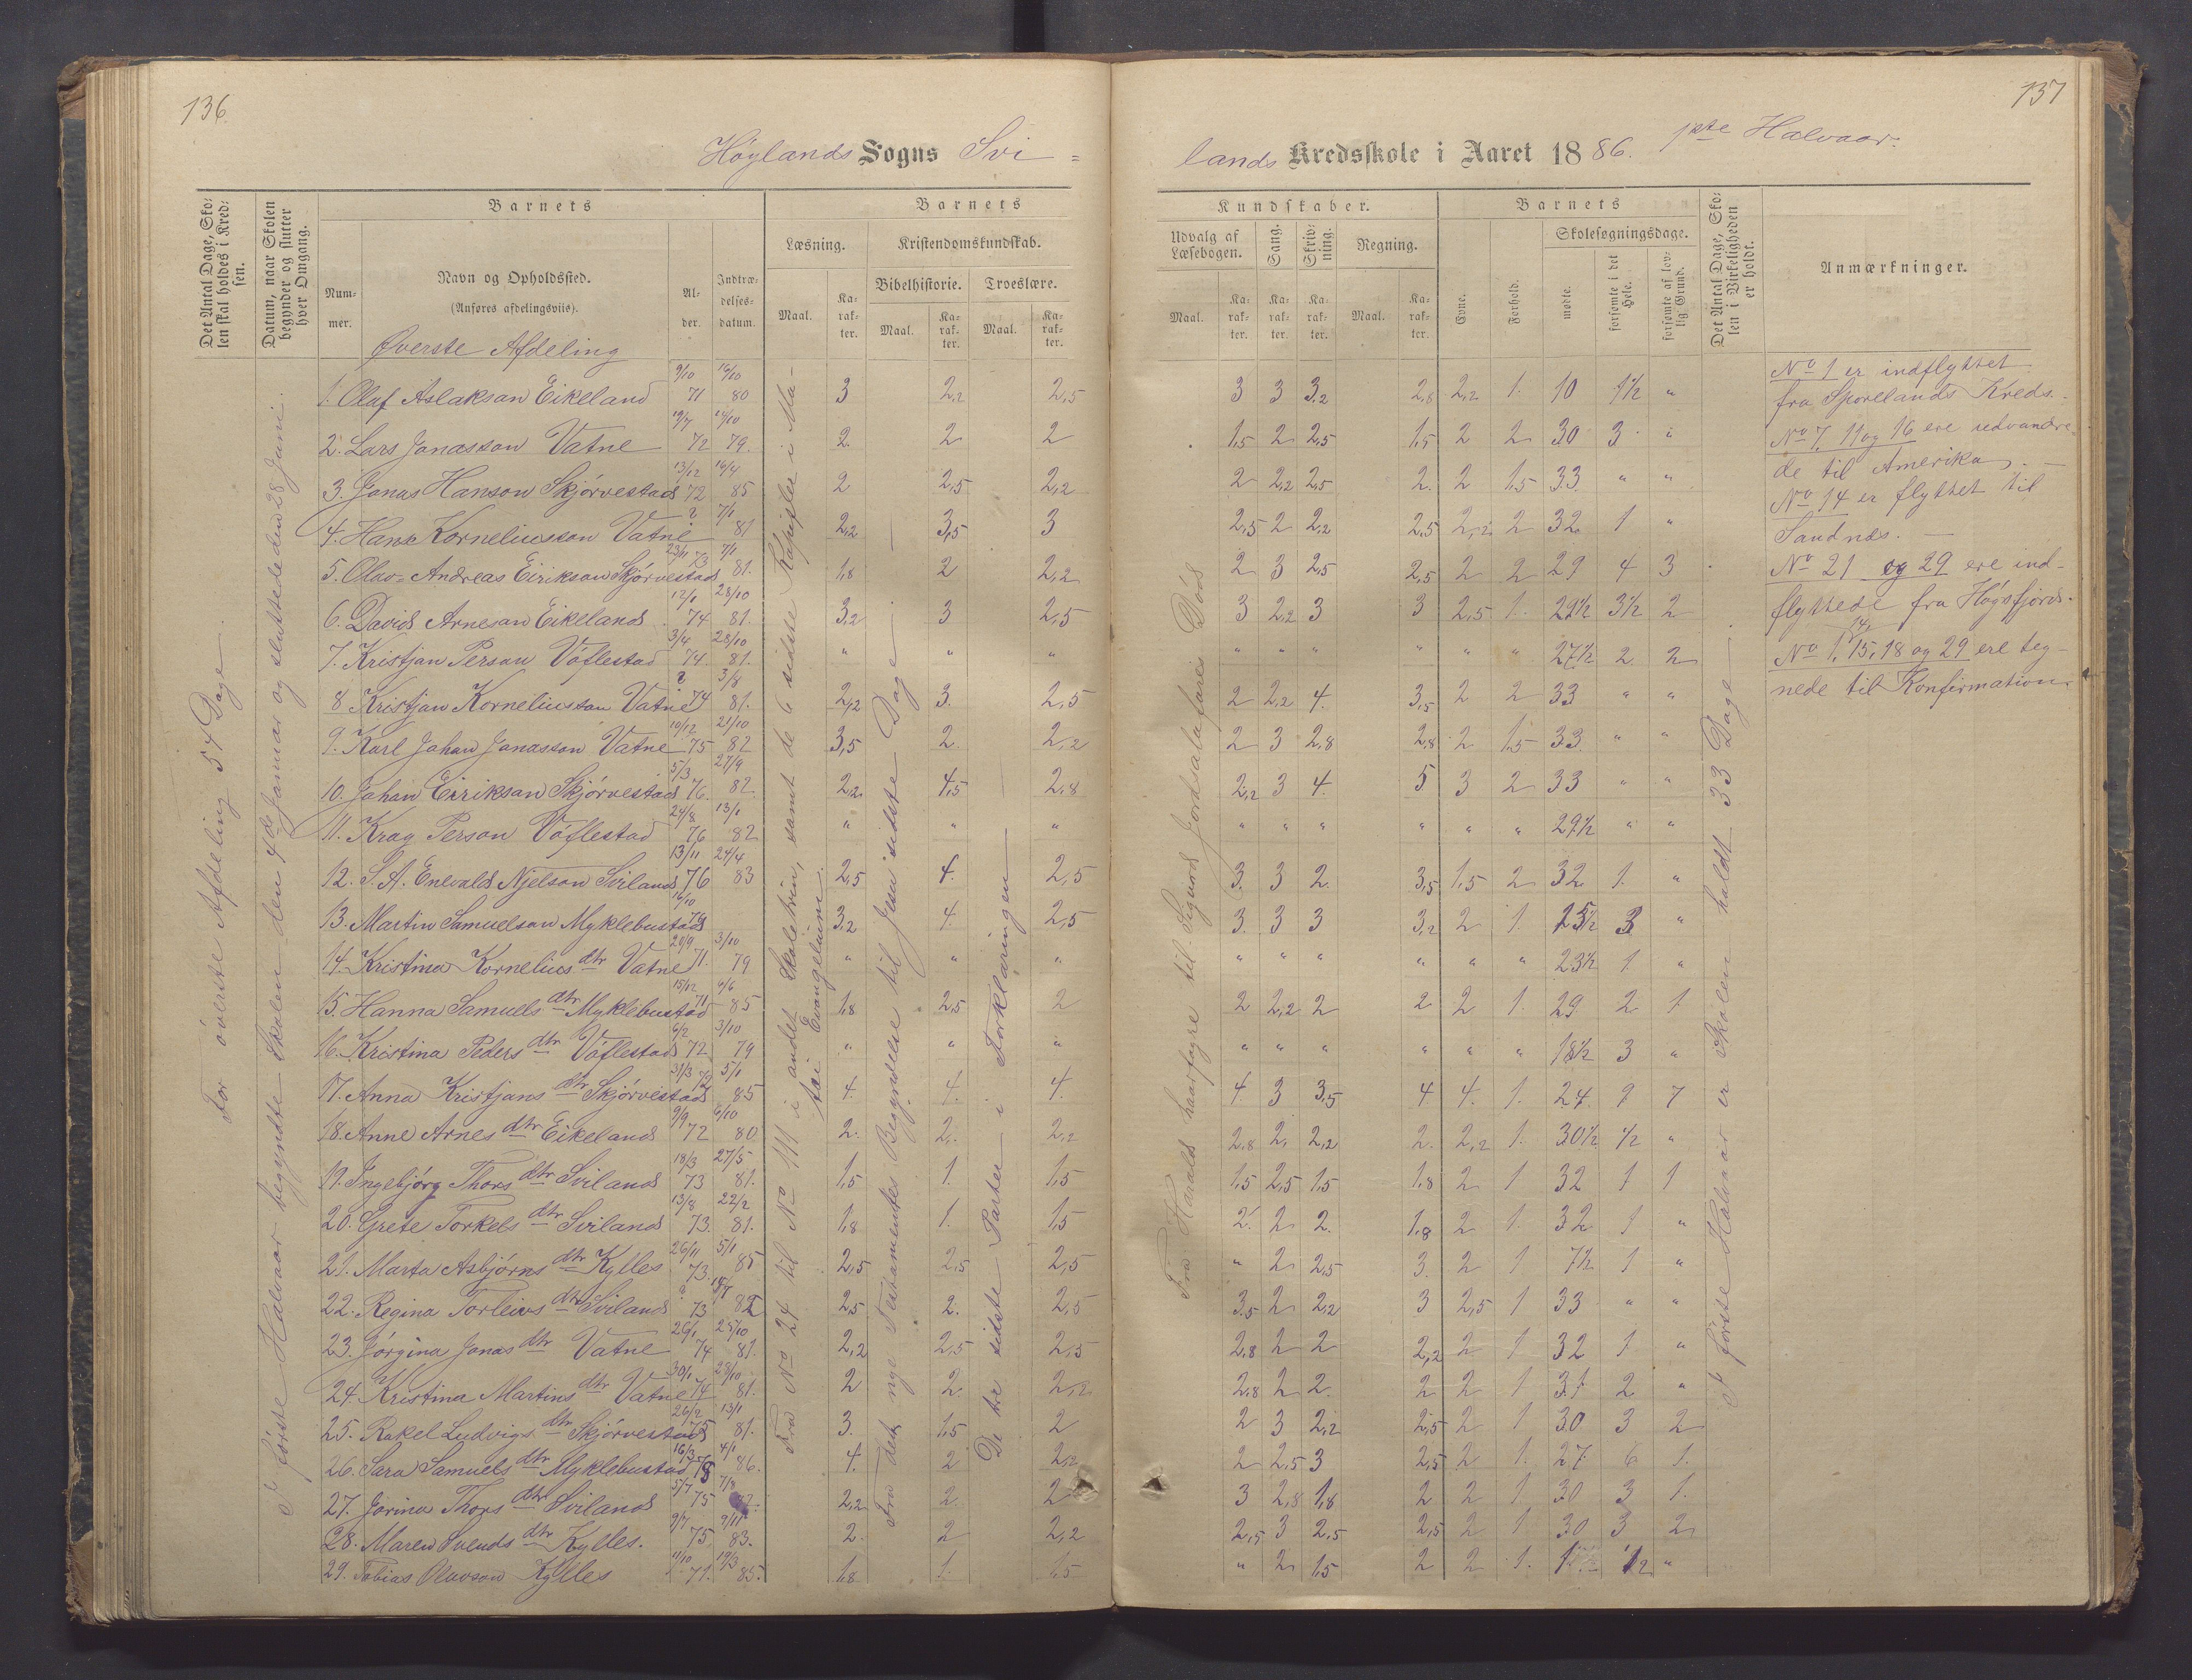 136.
137
Høylands Sogns Svi=
lands Kredsskole i Aaret 1886. 1ste Halvaar.
Det Antal Dage, Skolen skal holdes i Kredsen.
Datum, naar Skolen begynder og slutter hver Omgang.
Barnets
Nummer.
Navn og Opholdssted.
(Anføres afdelingsviis).
Alder.
Indtrædelses-datum.
Barnets
Læsning.
Kristendomskundskab.
Bibelhistorie.
Troeslære.
Maal.
Karakter.
Maal.
Karakter.
Maal.
Karakter.
Kundskaber.
Udvalg af Læsebogen.
Sang.
Skrivning.
Regning.
Maal.
Karakter.
Karakter.
Karakter.
Maal.
Karakter.
Barnets
Evne.
Forhold.
Skolesøgningsdage.
mødte.
forsømte i det Hele.
forsømte af lovlig Grund.
Det Antal Dage, Skolen i Virkeligheden er holdt.
Anmærkninger.
For överste Afdeling 54 Dage.
I förste Halvaar begyndte Skolen den 4de Januar og sluttede den 28 Juni.
Fra No 24 til No 111 i andet Skoletrin, samt de 6 sidste Kapitler i Mattæi Evangelium.
Fra det nye Testamentes Begyndelse til Jesu sidste Dage
De tre sidste Parter i Forklaringen
Fra Harald haarfagre til Sigurd Jorsalafares Död
I förste Halvaar er Skolen holdt 33 Dage
Øverste Afdeling
1. Olaf Aslakson Eikeland 9/10 71 16/10 80 3 2,2 2,5 3 3 3,2 2,8 2,2 1. 10 1½ "
2. Lars Jonasson Vatne 19/7 72 14/10 79. 2. 2 2 1,5 2 2,5 1,5 2 2 30 3 "
3. Jonas Hanson Skjörvestad 13/12 72 16/4 85 2 2,5 2,2 2 2,2 2,5 2. 2 1,5 33. " "
4. Hans Korneliusson Vatne 7/1 81 2,2 3,5 3 2,5 2 2,2 2,5 2,2 2 32 1 "
5. Olav Andreas Eirikson Skjörvestad 23/11 73 7/1 81. 1,8 2 2,2 2 3 2,5 2,5 2 2 29 4 3
6. David Arneson Eikeland 12/1 74 28/10 81. 3,2 3 2,5 3 2,2 3 3 2,5 1. 29½ 3½ 2
7. Kristjan Person Vöflestad 3/4 74. 28/10 81. " " " " " " " " " 27½ 2 2
8 Kristjan Korneliusson Vatne 74 3/8 81. 2,2 3. 2,5 2 2,2 4. 3,5 2 2 33 " "
9. Karl Johan Jonasson Vatne 10/12 75 21/10 82 3,5 2. 2,2 2 3 2,8 2,8 2 1,5 33. " "
10. Johan Eirikson Skjörvestad 5/3 76. 27/9 82. 2,2 4,5 2,8 2,2 3 4. 5 3 2 33 " "
11. Krag Person Vöflestad 24/8 76 13/1 82 " " " " " " " " " 29½ " "
12. S. A. Enevald Njelson Sviland 13/11 76 24/4 83 2,5 4. 2,5 3. 3 2. 3,5 1,5 2 32 1. "
13. Martin Samuelson Myklebustad 16/10 3,2 4. 2,5 3. 3 3 3,2 2 1. 25½ 3 "
14. Kristina Kornelius dtr Vatne 20/9 71. 3/10 79 " " " " " " " " " 23½ 1. "
15. Hanna Samuels dtr Myklebustad 15/12 71 9/6 85 1,8 2,5 2 2 2,2 2 2 2 1. 29 2 1
16. Kristina Peders dtr Vöflestad 6/2 72 3/10 79 " " " " " " " " " 18½ 3 "
17. Anna Kristjans dtr Skjörvestad 31/3 72 5/1 85 4. 4. 4. 4. 3 3,5 4 4. 1. 24. 9 7
18. Anne Arnes dtr Eikeland 9/9 72 6/10 80 2. 2. 2,2 2,8 2, 2,2 2. 2,2 1. 30½ ½ "
19. Ingebjörg Thors dtr Sviland 18/3 73 27/5 81. 1,5 1. 1,5 1,5 2,5 1,5 1,8 2 1 32 1 1
20. Grete Torkels dtr Sviland 13/8 73. 22/2 81. 1,8 1. 1,5 2. 2 2. 1,8 2 1. 32 1 "
21. Marta Asbjörns dtr Kylles 26/11 73. 5/1 85 2,5 2,5 2,5 " 2 2,5 3. 2 1 7½ 1 "
22. Regina Torleivs dtr Sviland 73 18/7 82 2,5 2. 2,5 3,5 2 2,2 3 2,5 1 33 " "
23. Jörgina Jonas dtr Vatne 26/1 74 25/10 81. 2,2 2,5 2,5 2,8 2 2 2,2 2 1 32 1 "
24. Kristina Martins dtr Vatne 30/1 74 23/10 81. 2 2. 2,2 2,8 2 2. 2 2 1 31 2 "
25. Rakel Ludvigs dtr Skjörvestad 26/2 75 13/1 81. 3. 1,5 2 2 3 2,2 2,5 2 1 30 3 2
26. Sara Samuels dtr Myklebustad 16/3 4/1 86. 4. 2 2,2 2 2,5 3 2,5 2 1. 27. 6 1.
27. Jorina Thors dtr Sviland 5/7 75 7/8 2,2 2. 2 3 2,8 1,8 2 2 1 30 3 1.
28. Maren Svends dtr Kylles. 9/7 75 9/11 83. 2. 2 2,2 2,5 3 2,5 2,5 2 1. 30 3 2
29. Tobias Olavson Kylles 11/10 71. 19/3 85. 1,8 1. 1,5 " 2 1,5 2 2 1. ½ "
No 1 er indflyttet
fra Sporelands Kreds.
No 7, 11 og 16 ere udvandre-
de til Amerika. —
No 14 er flyttet til
Sandnes. —
No 21 og 29 ere ind-
flyttede fra Høgsfjord.
No 1, 14, 15, 18 og 29 ere teg-
nede til Konfirmation.